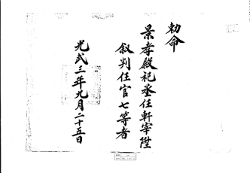 勅命
景孝殿祀丞任軒宰陞
叙判任官七等者
光武三年九月二十五日